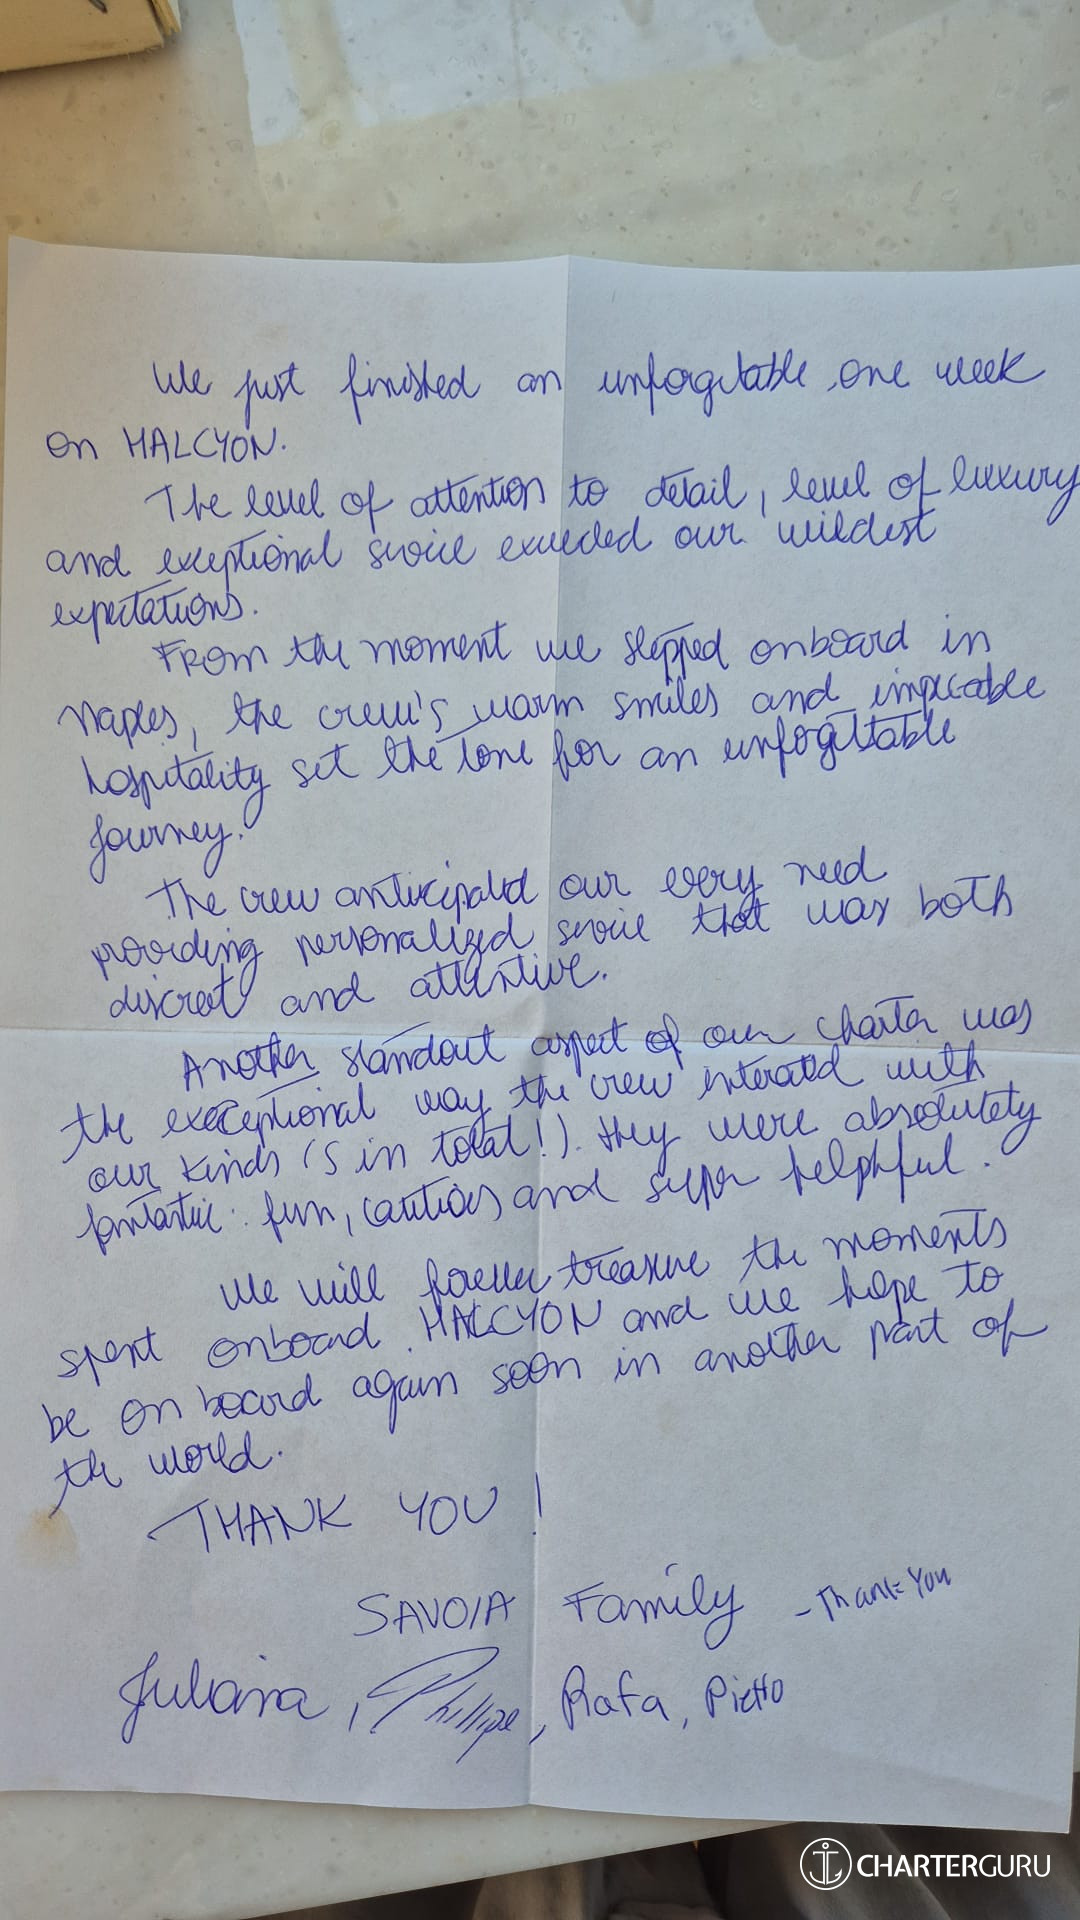 We just finished an unforgetable one week
on HALCYON.
The level of attention to detail, level of luxury
and exceptional service exceeded our wildest
expectations.
From the moment we stepped onboard in
Naples, the crew's warm smiles and impeccable
hospitality set the tone for an unforgettable
journey.
The crew anticipated our every need
providing personalized service that was both
discreet and attentive.
Another standout aspect of our charter was
the exceptional way the crew interated with
our kinds (5 in total!). They were absolutely
fantastic: fun, cautious and super helphful.
We will forever treasure the moments
spent onboard HALCYON and we hope to
be on board again soon in another part of
the world.
THANK YOU!
SAVOIA Family - Thank You
Juliana, Phillipe, Rafa, Pietro
CHARTERGURU